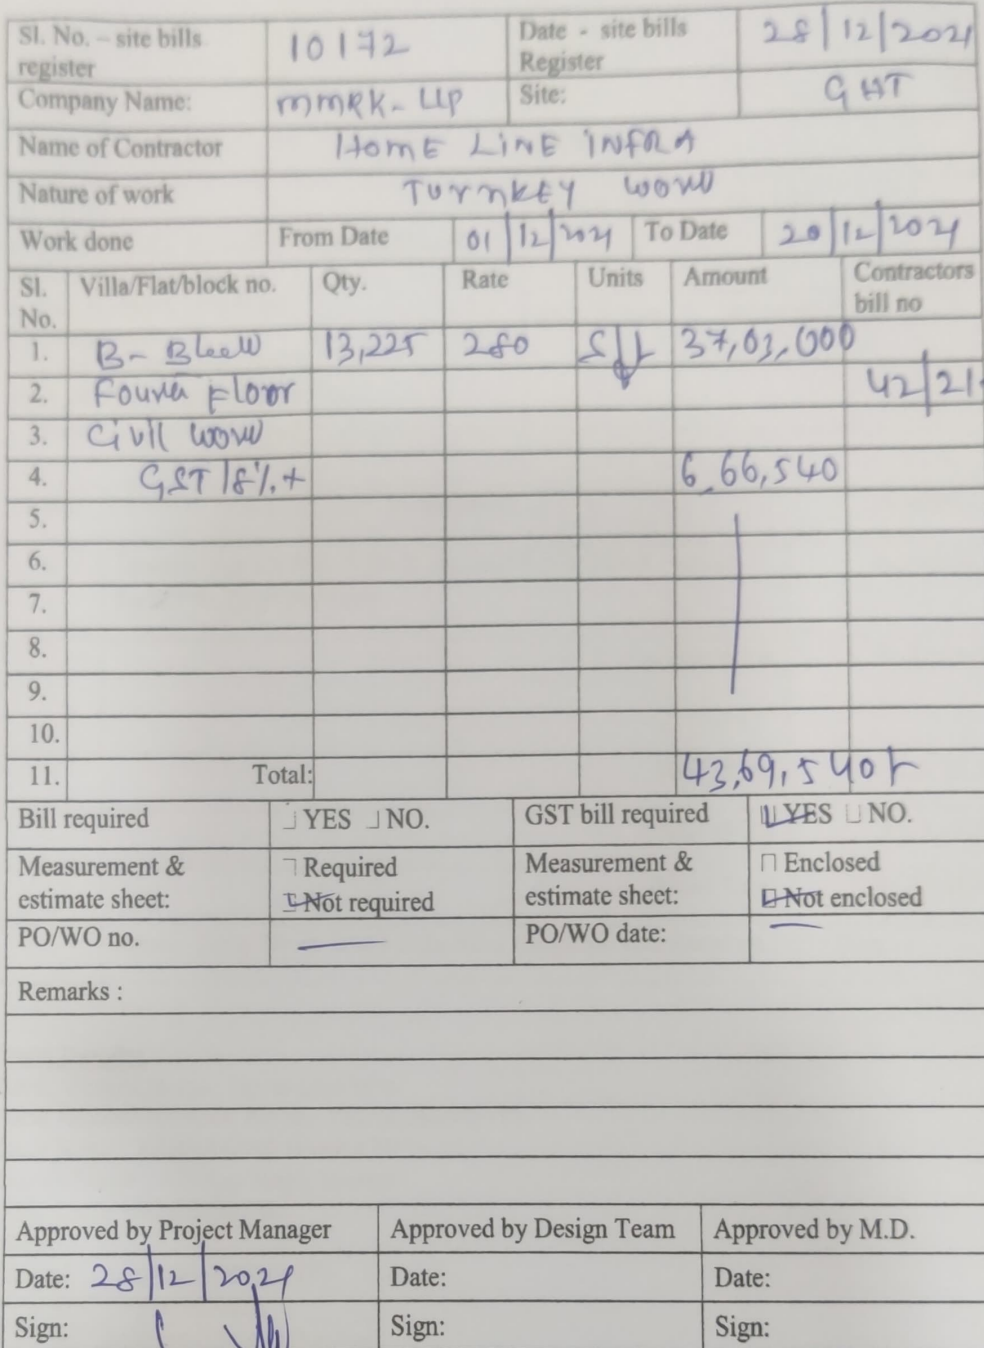 Sl. No. – site bills register 10172 Date - site bills Register 28/12/2021
Company Name: MMRK-LLP Site: GHT
Name of Contractor HOME LINE INFRA
Nature of work TURNKEY WORK
Work done From Date 01/12/2021 To Date 20/12/2021
Sl. No. Villa/Flat/block no. Qty. Rate Units Amount Contractors bill no
1. B- Block 13,225 280 Sft 37,03,000
2. Fourth Floor 42/21
3. Civil work
4. GST 18%+ 6,66,540
5.
6.
7.
8.
9.
10.
11. Total: 43,69,540/-
Bill required YES NO. GST bill required YES NO.
Measurement & estimate sheet: Required Not required Measurement & estimate sheet: Enclosed Not enclosed
PO/WO no. PO/WO date:
Remarks :
Approved by Project Manager Approved by Design Team Approved by M.D.
Date: 28/12/2021 Date: Date:
Sign: Sign: Sign: